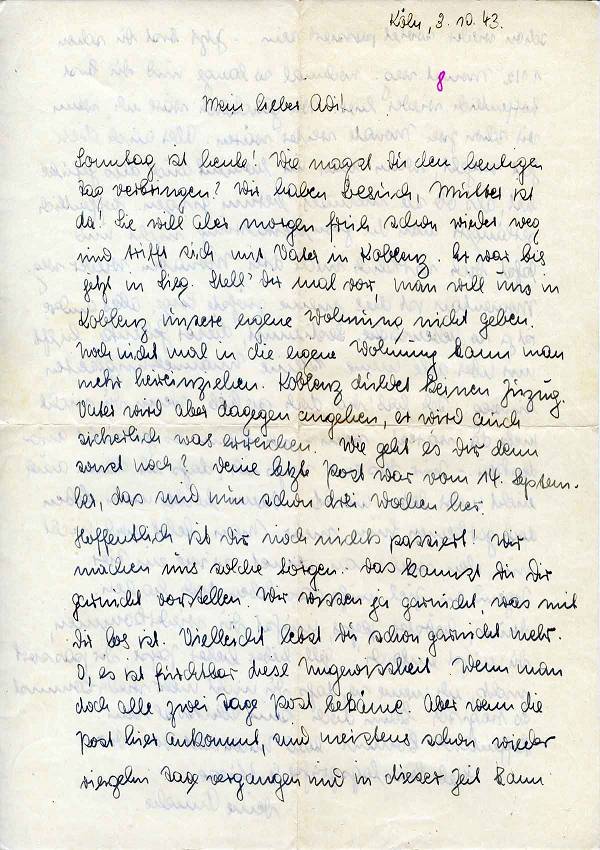 Köln, 3.10.43.
8
Mein lieber Adi!
Sonntag ist heute! Wie magst Du den heutigen
Tag verbringen? Wir haben Besuch, Mutter ist
da! Sie will aber morgen früh schon wieder weg
und trifft sich mit Vater in Koblenz. Er war bis
jetzt in Sieg. Stell' Dir mal vor, man will uns in
Koblenz unsere eigene Wohnung nicht geben.
Noch nicht mal in die eigene Wohnung kann man
mehr hereinziehen. Koblenz duldet keinen Zuzug.
Vater wird aber dagegen angehen, er wird auch
sicherlich was erreichen. Wie geht es Dir denn
sonst noch? Deine letzte Post war vom 14. Septem-
ber, das sind nun schon drei Wochen her.
Hoffentlich ist Dir noch nichts passiert! Wir
machen uns solche Sorgen. Das kannst Du Dir
garnicht vorstellen. Wir wissen ja garnicht, was mit
Dir los ist. Vielleicht lebst Du schon garnicht mehr.
O, es ist furchtbar diese Ungewissheit. Wenn man
doch alle zwei Tage Post bekäme. Aber wenn die
Post hier ankommt, sind meistens schon wieder
vierzehn Tage vergangen und in dieser Zeit kann